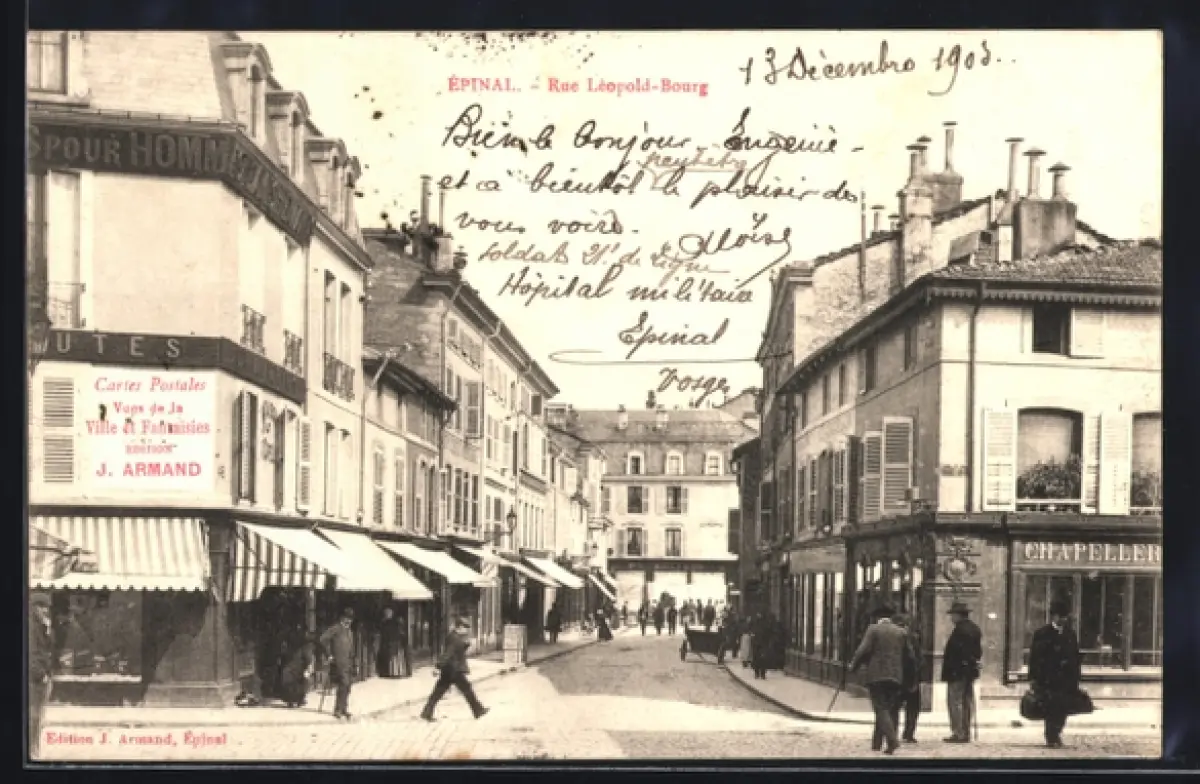 ÉPINAL. - Rue Léopold-Bourg
13 Décembre 1903.
Bien le bonjour Eugénie
et a bientôt le plaisir de
vous voire.
Aloïse
soldat 21e de Ligne
Hôpital militaire
Épinal
Vosges
S POUR HOMM
UTES
Cartes Postales
Vues de la
Ville et Fantaisies
EDITION
J. ARMAND
CHAPELLER
Edition J. Armand, Épinal